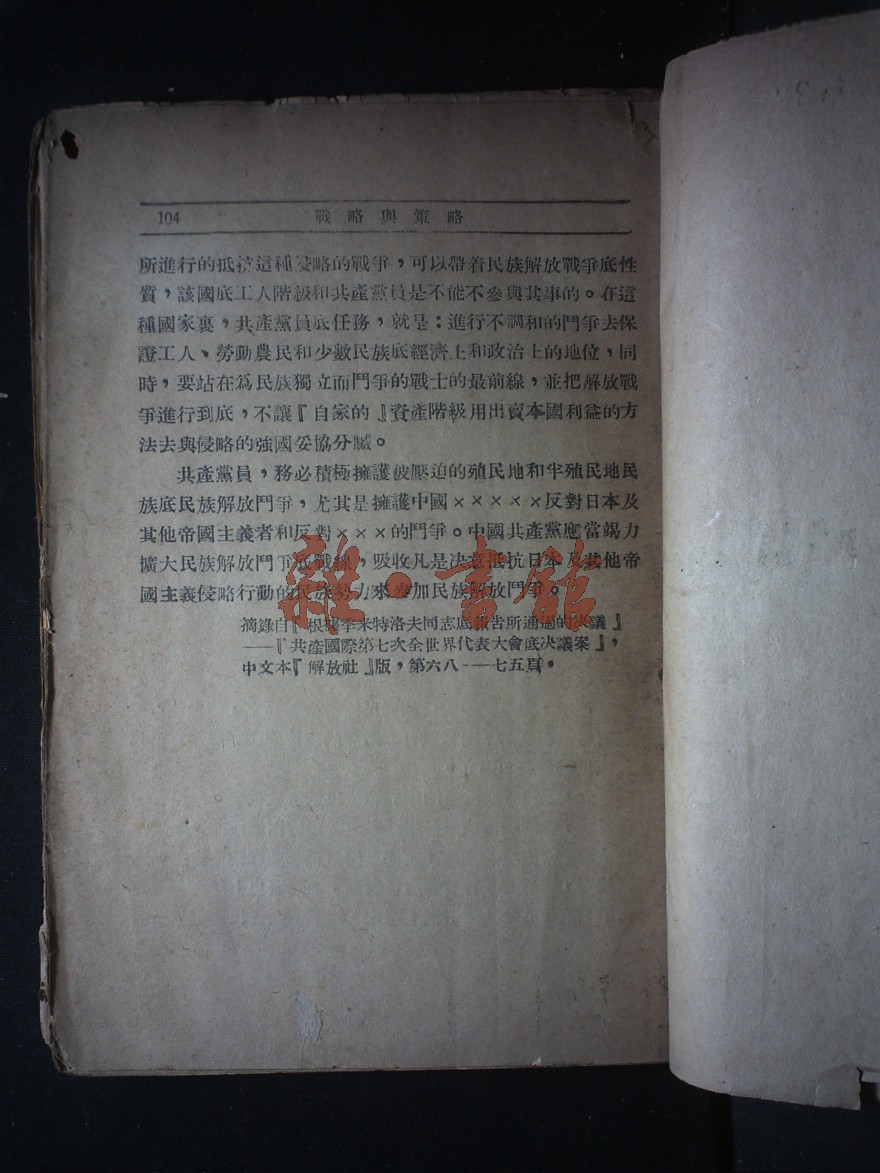 104 戰略與策略
所進行的抵擋這種侵略的戰爭，可以帶着民族解放戰爭底性
質，該國底工人階級和共產黨員是不能不參與其事的。在這
種國家裏，共產黨員底任務，就是：進行不調和的鬥爭去保
證工人、勞動農民和少數民族底經濟上和政治上的地位，同
時，要站在爲民族獨立而鬥爭的戰士的最前線，並把解放戰
爭進行到底，不讓『自家的』資產階級用出賣本國利益的方
法去與侵略的強國妥協分贓。
共產黨員，務必積極擁護被壓迫的殖民地和半殖民地民
族底民族解放鬥爭，尤其是擁護中國×××××反對日本及
其他帝國主義者和反對×××的鬥爭。中國共產黨應當竭力
擴大民族解放鬥爭底戰線，吸收凡是決意抵抗日本及其他帝
國主義侵略行動的民族勢力來參加民族解放鬥爭。
摘錄自『根據季米特洛夫同志底報告所通過的決議』
——『共產國際第七次全世界代表大會底決議案』，
中文本『解放社』版，第六八——七五頁。
雜·書館